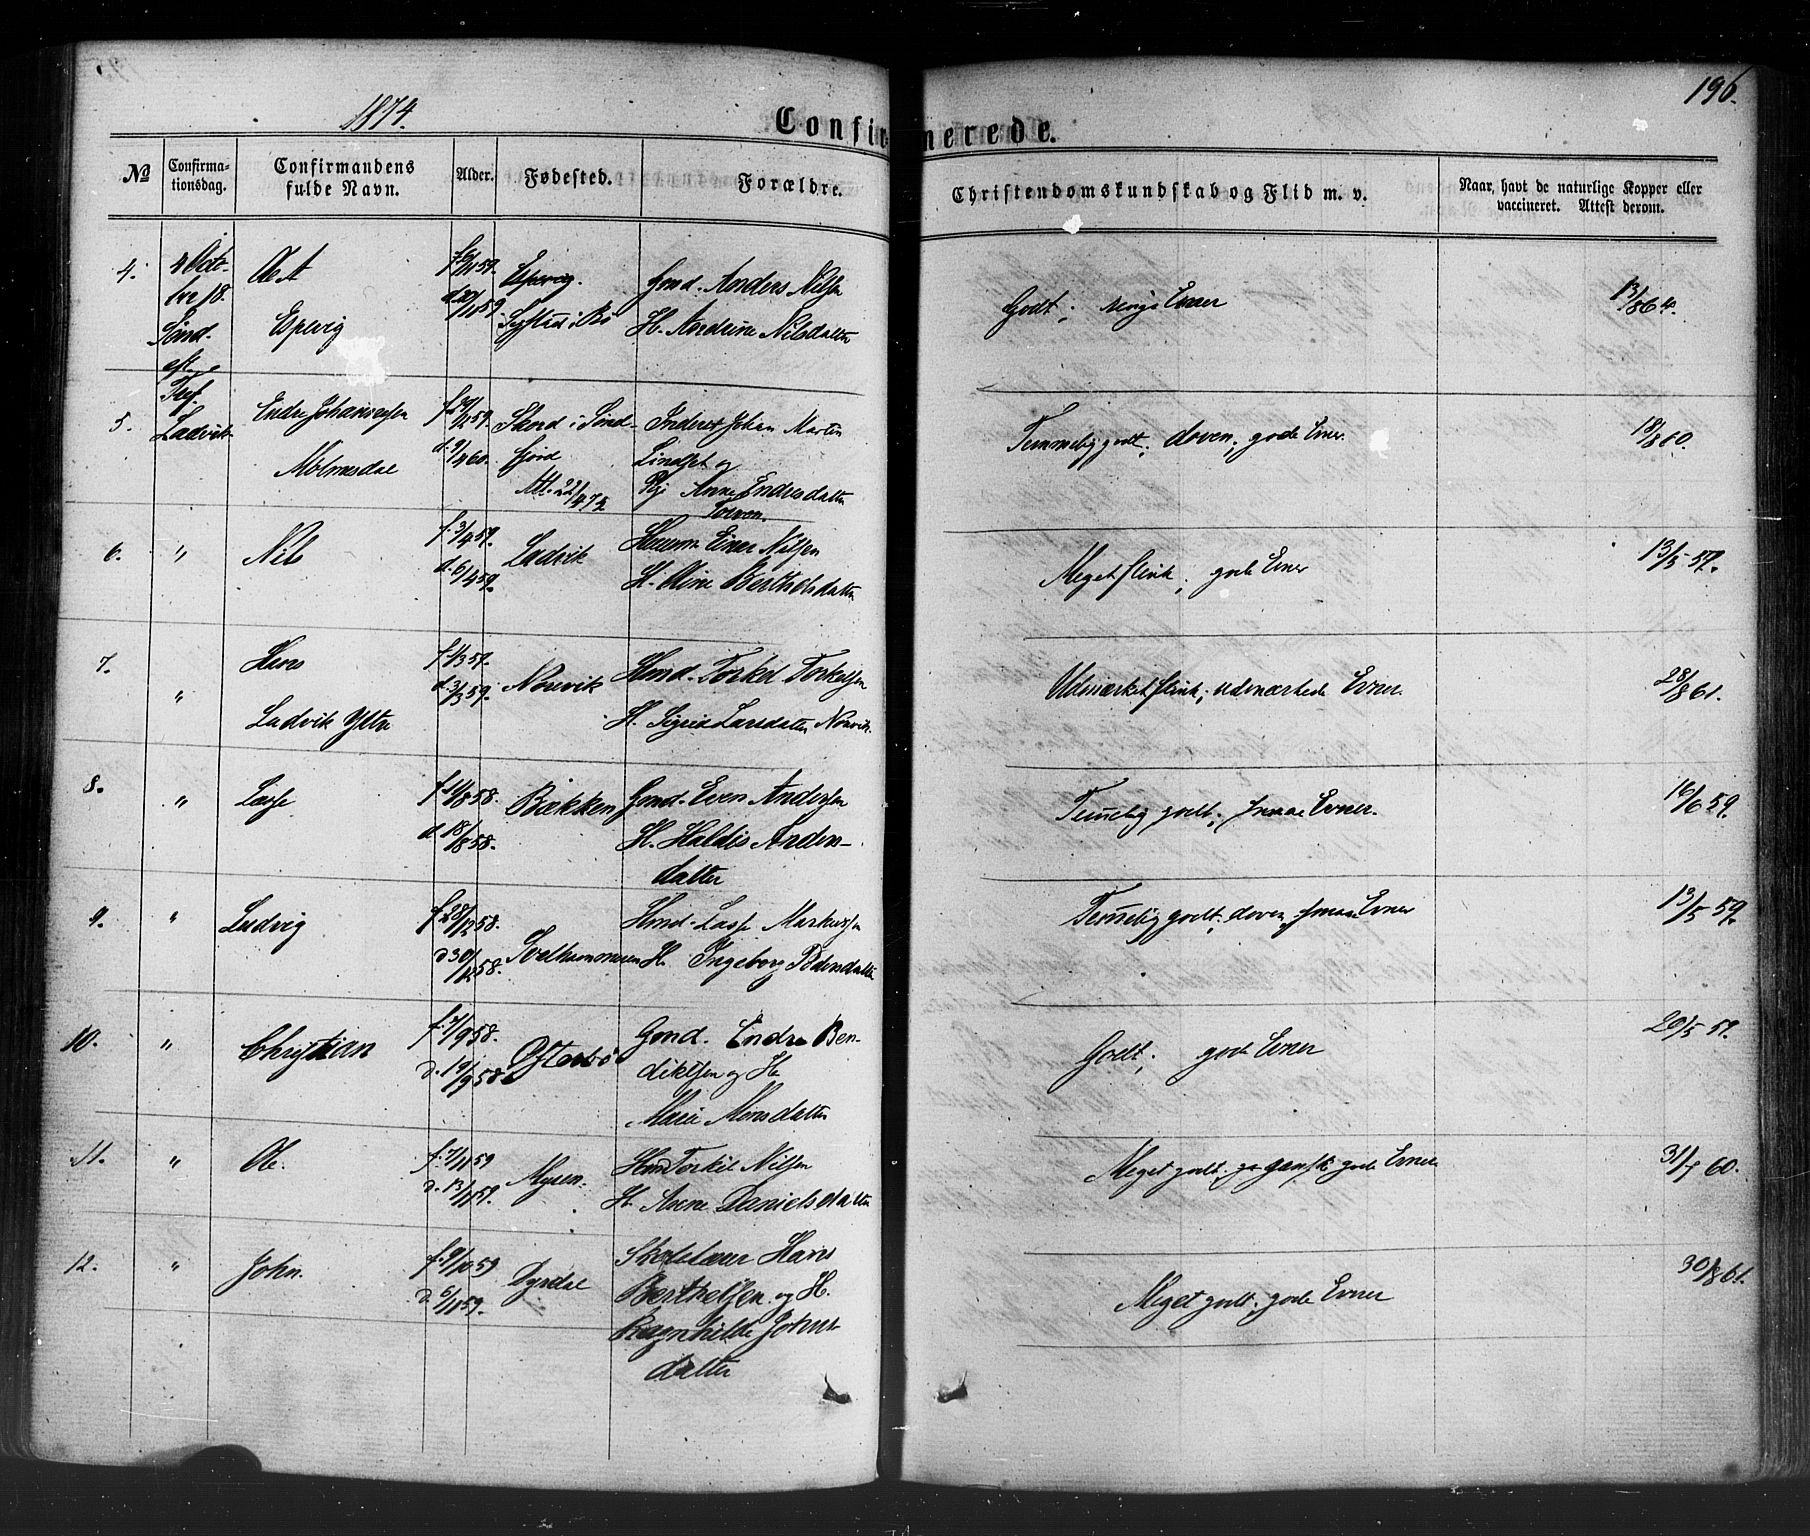 196.
1874.
Confirmerede.
No
Confirma-
tionsdag.
Confirmandens
fulde Navn.
Alder.
Fødested.
Forældre.
Christendomskundskab og Flid m. v.
Naar, havt de naturlige Kopper eller
vaccineret. Attest derom.
4.
4 Octe-
bre 18.
Sønd.
eft.
Tref.
Ladvik
Espevig
Espevig.
Gmd. Anders Nilsen
H. Andrine Nilsdatter
Godt; Evner
13/8 64.
5.
Endre Johannessen
Molmesdal
f.
d. 9/4 60.
i Sønd-
fjord
Att. 22/4 74
Inderst Johan Martin
Lindset og
Pige Anne Endresdatter
Temmelig godt; doven; gode Evner.
18/8 60.
6.
"
Nils
f. 3/4 59.
d. 6/4 59.
Ladvik
Einar Nilsen
H. Oline Bertholsdatter
Meget flink; gode Evner
13/5 59.
7.
"
Jens
Ladvik Ytre
f. 1/3 59.
d. 3/3 59.
Norevik
Hmd. Torkel Torkelsen
H. Sigrid Larsdatter Norevik.
Udmærket flink; udmærkede Evner.
28/8 61.
8.
"
Lasse
f. 11/8 58.
d. 18/8 58.
Bækken
Gmd. Even Andersen
H. Haldis Anders-
datter
Temelig godt; smaae Evner.
16/6 59.
9.
"
Ludvig
f. 28/12 58.
d 30/12 58.
Hmd. Lasse Markussen
H. Ingeborg Pedersdatter
Temelig godt; doven, smaae Evner
13/5 59.
10.
"
Christian
f. 7/9 58.
d. 19/9 58.
Østerbø
Gmd. Endre Ben-
diktsen og H.
Marie Monsdatter
Godt; gode Evner
20/5 59.
11.
"
Ole.
f. 7/11 59
d. 13/11 59.
Myren.
Hmd Torkil Nilsen
H. Anne Danielsdatter
Meget godt. ganske gode Evner
31/ 60.
12.
"
John.
f. 9/10 59
d. 5/11 59.
Dyrdal
Skolelærer Hans
Berthelsen og H.
Ragnhilde Johns-
datter
Meget godt; gode Evner
30/8 61.